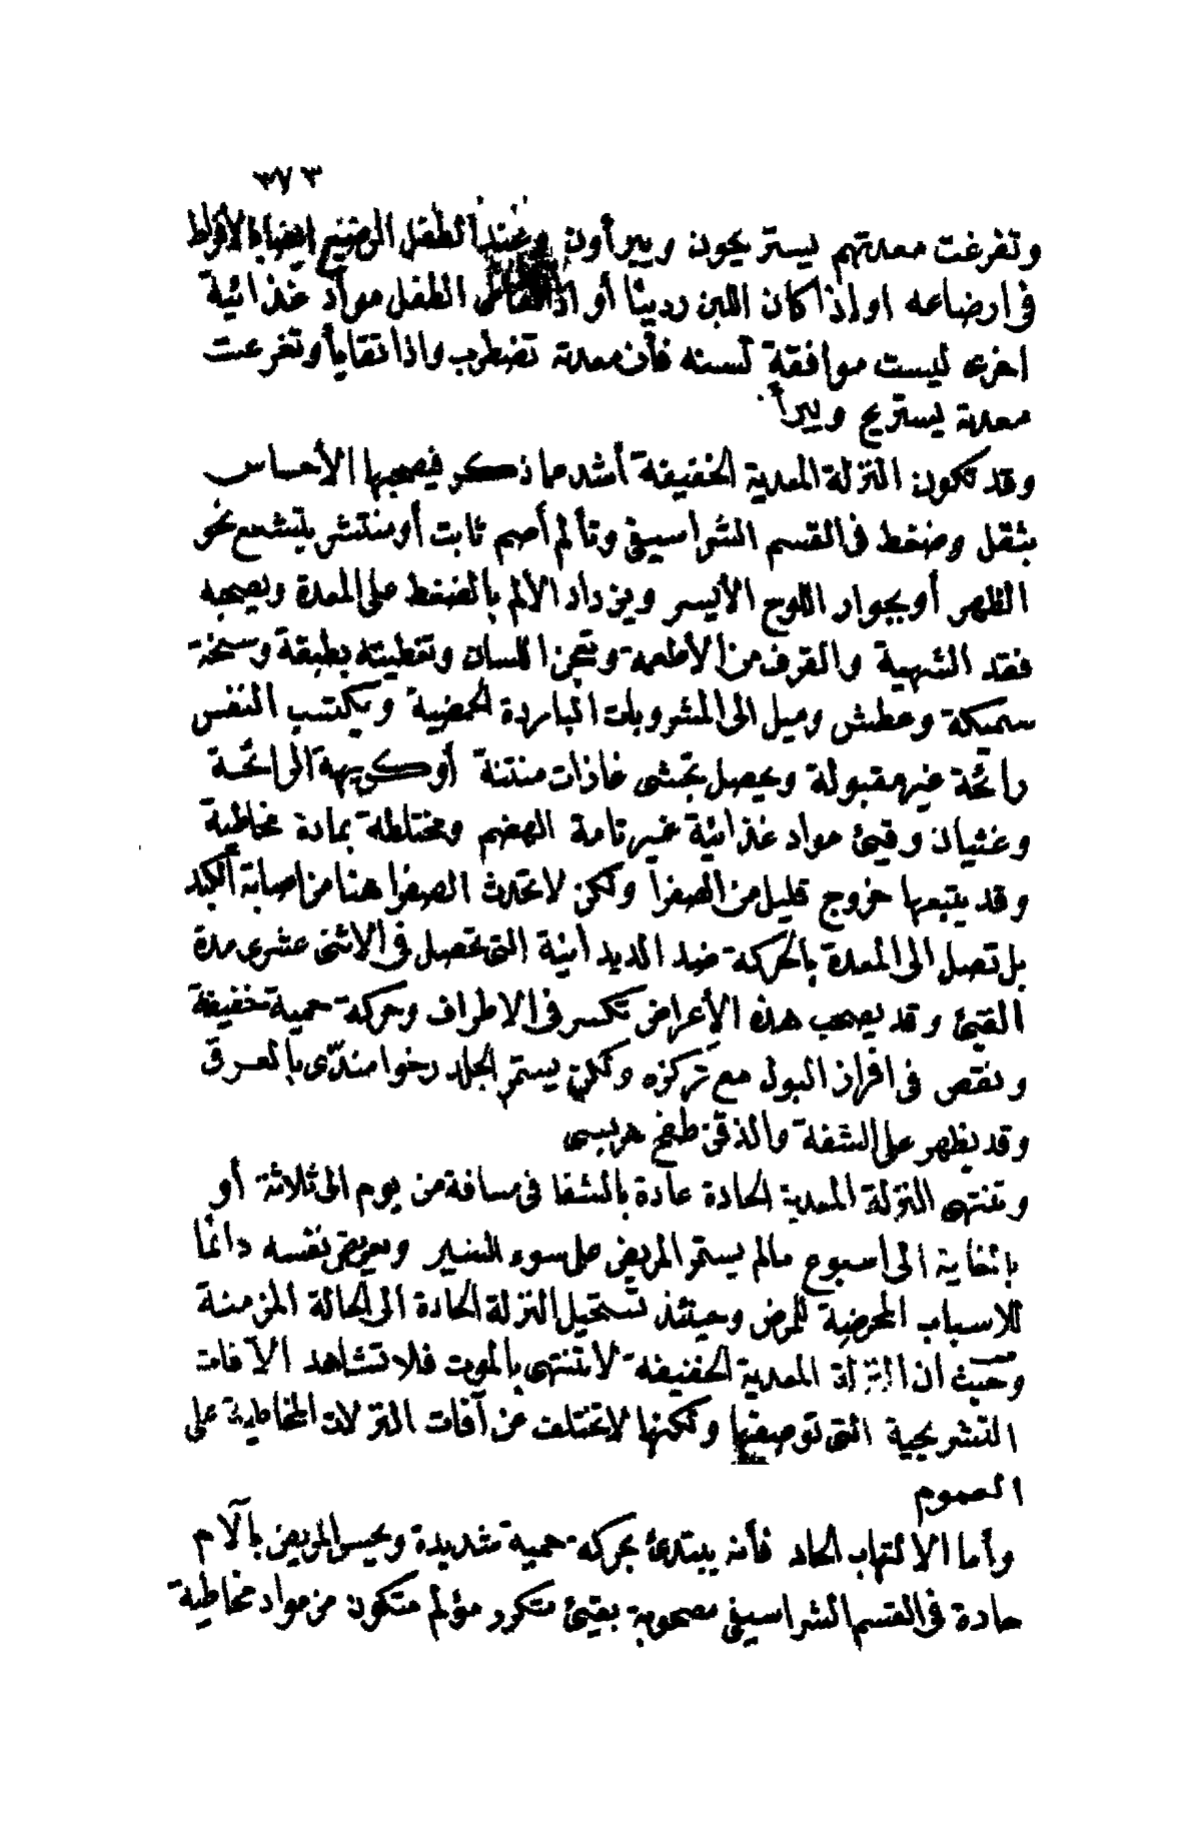 ٣٧٣
وتفرغت معدتهم يستريحون ويبرأون وعند الطفل الرضيع ايضا بالأفراط
فى ارضاعه او اذا كان اللبن رديئا أو اذا الطفل مواد غذائية
اخرى ليست موافقة لسنه فأن معدته تضطرب واذا تقايأ وتفرغت
معدته يستريح ويبرأ .
وقد تكون النزلة المعدية الخفيفة أشد مما ذكر فيصحبها الأحساس
بثقل وضغط فى القسم الشراسيفى وتألم أصم ثابت أو منتشر يتشعع نحو
الظهر أو بجوار اللوح الأيسر ويزداد الألم بالضغط على المعدة ويصحبه
فقد الشهية والقرف من الأطعمة وتعجن اللسان وتغطيته بطبقة وسخة
سميكة وعطش وميل الى المشروبات الباردة الحمضية ويكتسب النفس
رائحة غير مقبولة ويحصل تجشى غازات منتنة أو كريهة الرائحة
وغثيان وقيئ مواد غذائية غير تامة الهضم ومختلطة بمادة مخاطية
وقد يتبعها خروج قليل من الصفرا ولكن لا تحدث الصفرا هنا من اصابة الكبد
بل تصل الى المعدة بالحركة ضد الديدانية التى تحصل فى الاثنى عشرى مدة
القيئ وقد يصحب هذه الأعراض تكسر فى الاطراف وحركة حمية خفيفة
ونقص فى افراز البول مع تركزه ولكن يستمر الجلد رخوا مندّى بالعرق
وقد يظهر على الشفة والذقن طفح هربسى
وتنتهى النزلة المعدية الحادة عادة بالشفا فى مسافة من يوم الى ثلاثة أو
بالغاية الى اسبوع مالم يستمر المريض على سوء السير وتعريض نفسه دائما
للاسباب المحرضة للمرض وحينئذ تستحيل النزلة الحادة الى الحالة المزمنة
وحيث ان النزلة المعدية الخفيفة لا تنتهى بالموت فلا تشاهد الآفات
التشريحية التى توصفها ولكنها لا تختلف عن آفات النزلات المخاطية على
العموم
وأما الالتهاب الحاد فأنه يبتدئ بحركة حمية شديدة ويحس المريض بآلام
حادة فى القسم الشراسيفى مصحوبة بقيئ متكرر مؤلم متكون من مواد مخاطية